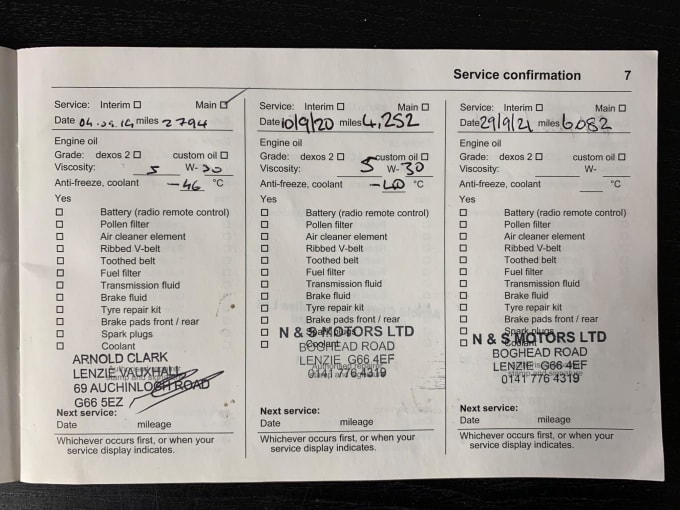 Service confirmation 7
Service: Interim ☐ Main ☐
Date 04.09.19 miles 2794
Engine oil
Grade: dexos 2 ☐ custom oil ☐
Viscosity: 5 W- 30
Anti-freeze, coolant -46 °C
Yes
☐ Battery (radio remote control)
☐ Pollen filter
☐ Air cleaner element
☐ Ribbed V-belt
☐ Toothed belt
☐ Fuel filter
☐ Transmission fluid
☐ Brake fluid
☐ Tyre repair kit
☐ Brake pads front / rear
☐ Spark plugs
☐ Coolant
ARNOLD CLARK
LENZIE VAUXHALL
69 AUCHINLOCH ROAD
G66 5EZ
Next service:
Date mileage
Whichever occurs first, or when your
service display indicates.
Service: Interim ☐ Main ☐
Date 10/9/20 miles 4,252
Engine oil
Grade: dexos 2 ☐ custom oil ☐
Viscosity: 5 W- 30
Anti-freeze, coolant -40 °C
Yes
☐ Battery (radio remote control)
☐ Pollen filter
☐ Air cleaner element
☐ Ribbed V-belt
☐ Toothed belt
☐ Fuel filter
☐ Transmission fluid
☐ Brake fluid
☐ Tyre repair kit
☐ Brake pads front / rear
☐ Spark plugs
☐ Coolant
N & S MOTORS LTD
BOGHEAD ROAD
LENZIE G66 4EF
0141 776 4319
Next service:
Date mileage
Whichever occurs first, or when your
service display indicates.
Service: Interim ☐ Main ☐
Date 29/9/21 miles 6082
Engine oil
Grade: dexos 2 ☐ custom oil ☐
Viscosity: W-
Anti-freeze, coolant °C
Yes
☐ Battery (radio remote control)
☐ Pollen filter
☐ Air cleaner element
☐ Ribbed V-belt
☐ Toothed belt
☐ Fuel filter
☐ Transmission fluid
☐ Brake fluid
☐ Tyre repair kit
☐ Brake pads front / rear
☐ Spark plugs
☐ Coolant
N & S MOTORS LTD
BOGHEAD ROAD
LENZIE G66 4EF
0141 776 4319
Next service:
Date mileage
Whichever occurs first, or when your
service display indicates.